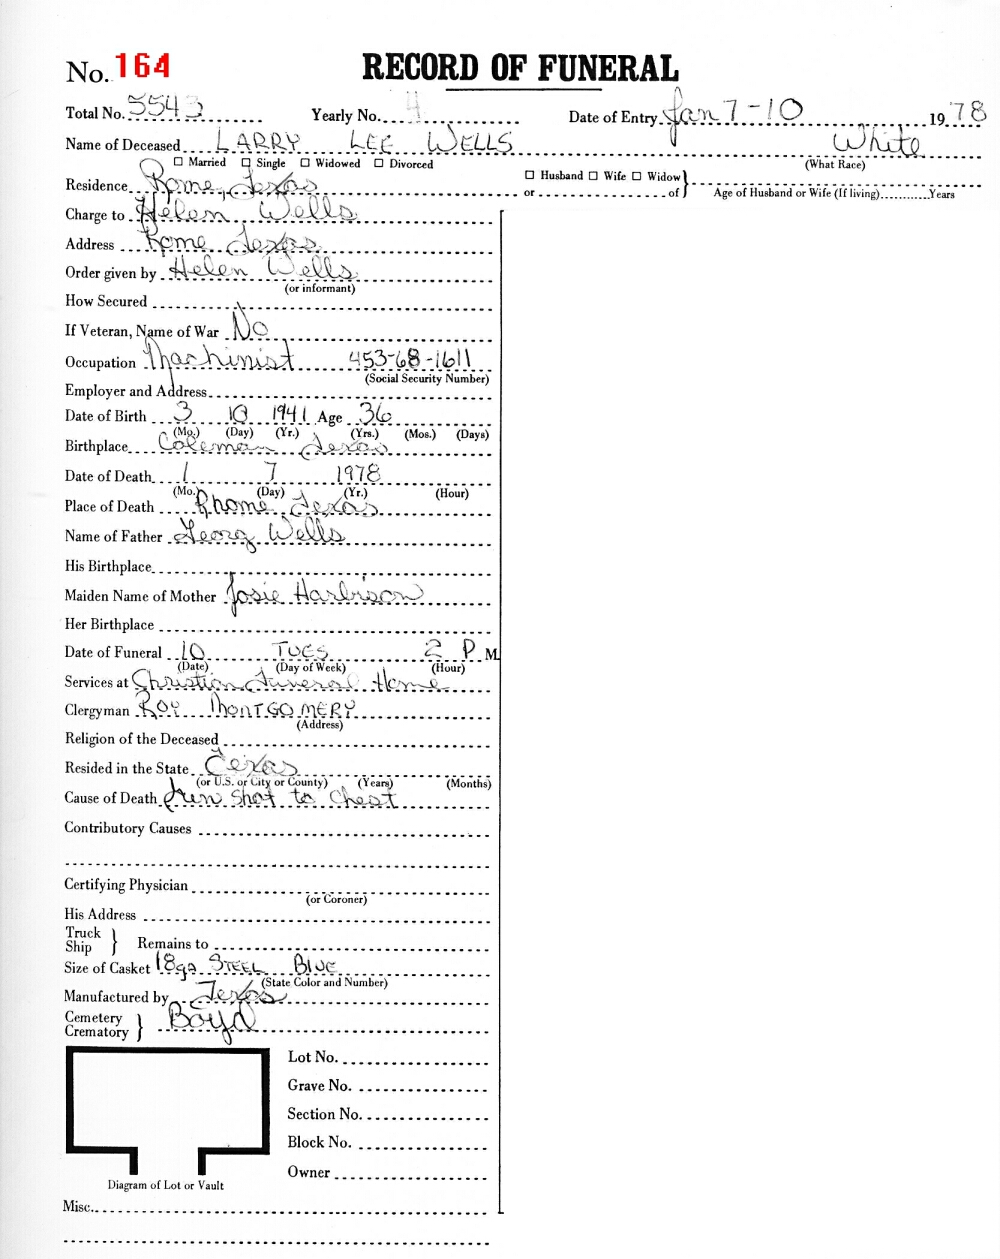 No. 164 RECORD OF FUNERAL
Total No. 5543 Yearly No. 4 Date of Entry Jan 7-10 1978
Name of Deceased LARRY LEE WELLS White
☐ Married ☐ Single ☐ Widowed ☐ Divorced (What Race)
Residence Rome, Texas ☐ Husband ☐ Wife ☐ Widow }
or of Age of Husband or Wife (If living) Years
Charge to Helen Wells
Address Rome Texas
Order given by Helen Wells
(or informant)
How Secured
If Veteran, Name of War No
Occupation Machinist 453-68-1611
(Social Security Number)
Employer and Address
Date of Birth 3 10 1941 Age 36
(Mo.) (Day) (Yr.) (Yrs.) (Mos.) (Days)
Birthplace Coleman Texas
Date of Death 1 7 1978
(Mo.) (Day) (Yr.) (Hour)
Place of Death Rhome Texas
Name of Father Georg Wells
His Birthplace
Maiden Name of Mother Josie Harbison
Her Birthplace
Date of Funeral 10 TUES 2 P M.
(Date) (Day of Week) (Hour)
Services at Christian Funeral Home
Clergyman ROY MONTGOMERY
(Address)
Religion of the Deceased
Resided in the State Texas
(or U.S. or City or County) (Years) (Months)
Cause of Death Gun Shot to Chest
Contributory Causes
Certifying Physician
(or Coroner)
His Address
Truck
Ship } Remains to
Size of Casket 18ga STEEL BLUE
(State Color and Number)
Manufactured by Texas
Cemetery
Crematory } Boyd
Lot No.
Grave No.
Section No.
Block No.
Owner
Diagram of Lot or Vault
Misc.